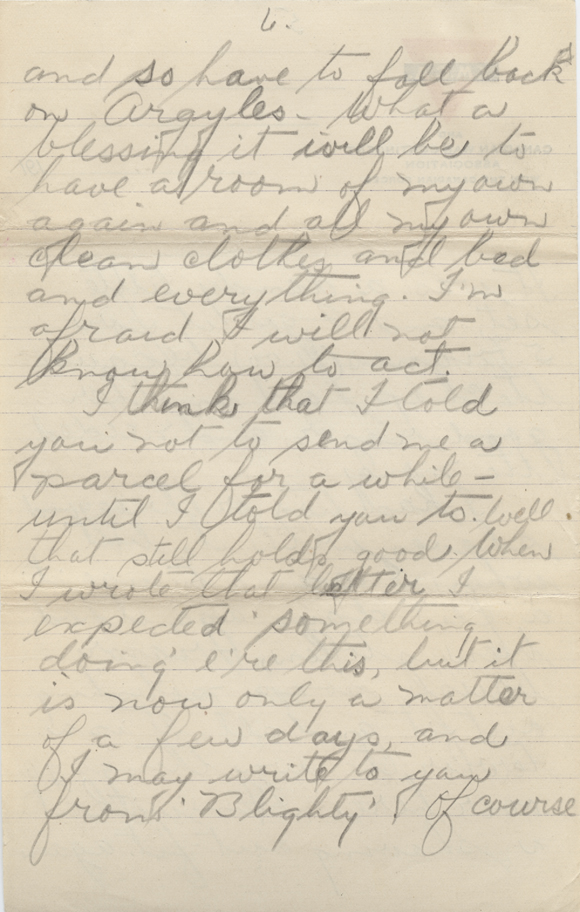 6.
and so have to fall back
on Argyles - What a
blessing it will be to
have a room of my own
again and all my own
clean clothes and bed
and everything. I'm
afraid I will not
know how to act.
I think that I told
you not to send me a
parcel for a while -
until I told you to. Well
that still holds good. When
I wrote that letter I
expected 'something
doing' e're this, but it
is now only a matter
of a few days, and
I may write to you
from 'Blighty'. Of course